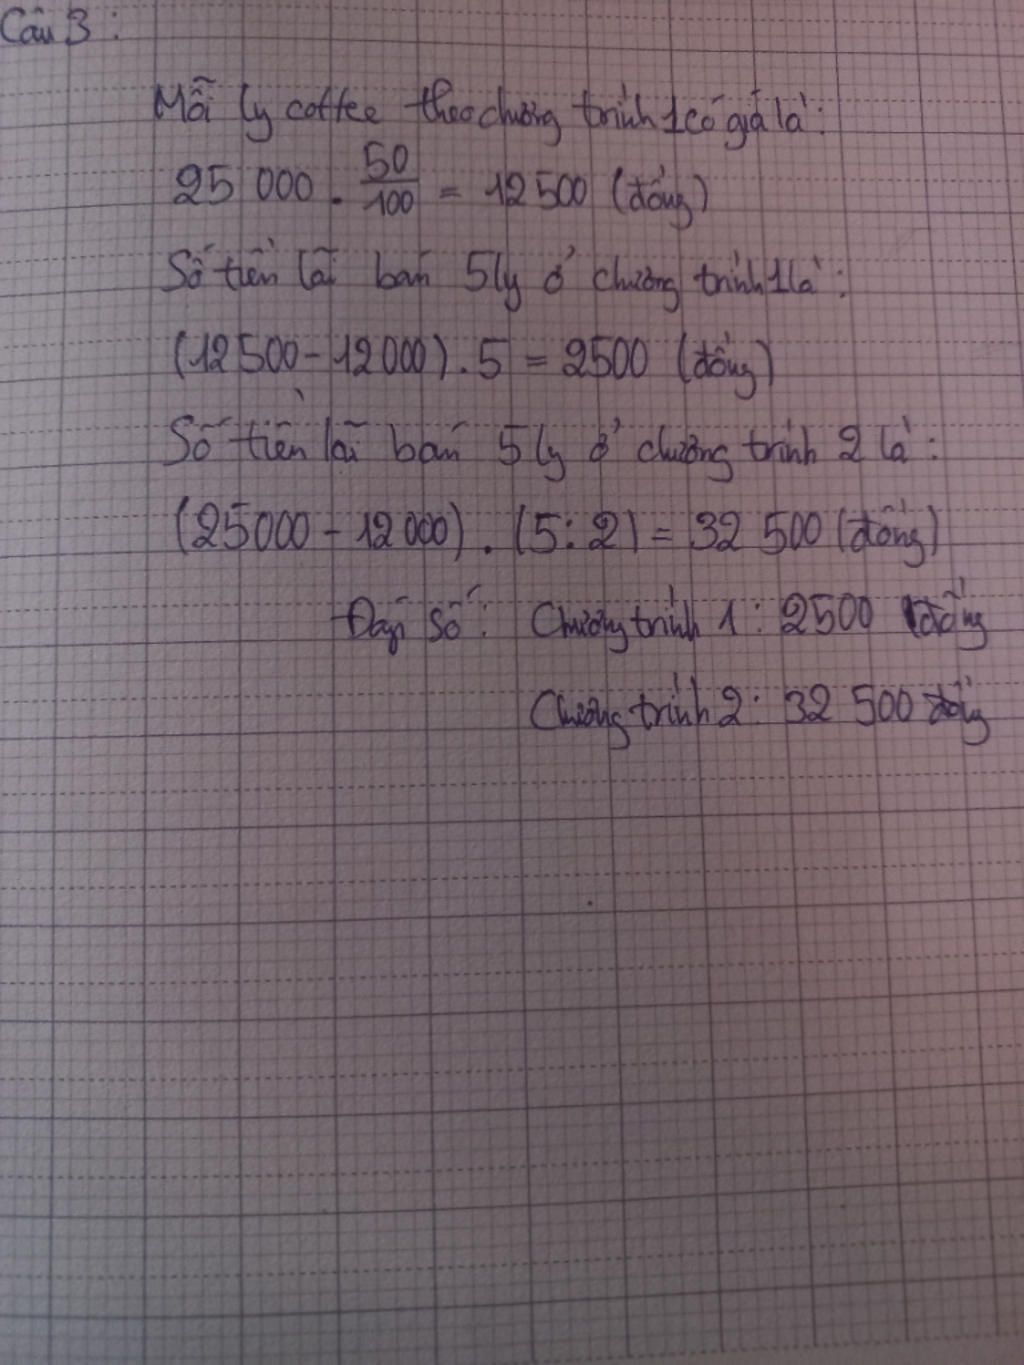 Câu 3:
Mỗi ly coffee theo chương trình 1 có giá là:
25 000 . 50/100 = 12 500 (đồng)
Số tiền lãi bán 5 ly ở chương trình 1 là:
(12 500 - 12 000) . 5 = 2500 (đồng)
Số tiền lãi bán 5 ly ở chương trình 2 là:
(25 000 - 12 000) . (5 : 2) = 32 500 (đồng)
Đáp số: Chương trình 1: 2500 đồng
Chương trình 2: 32 500 đồng